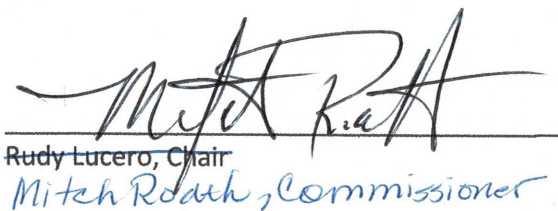 Mitch Roath
Rudy Lucero, Chair
Mitch Roath, Commissioner